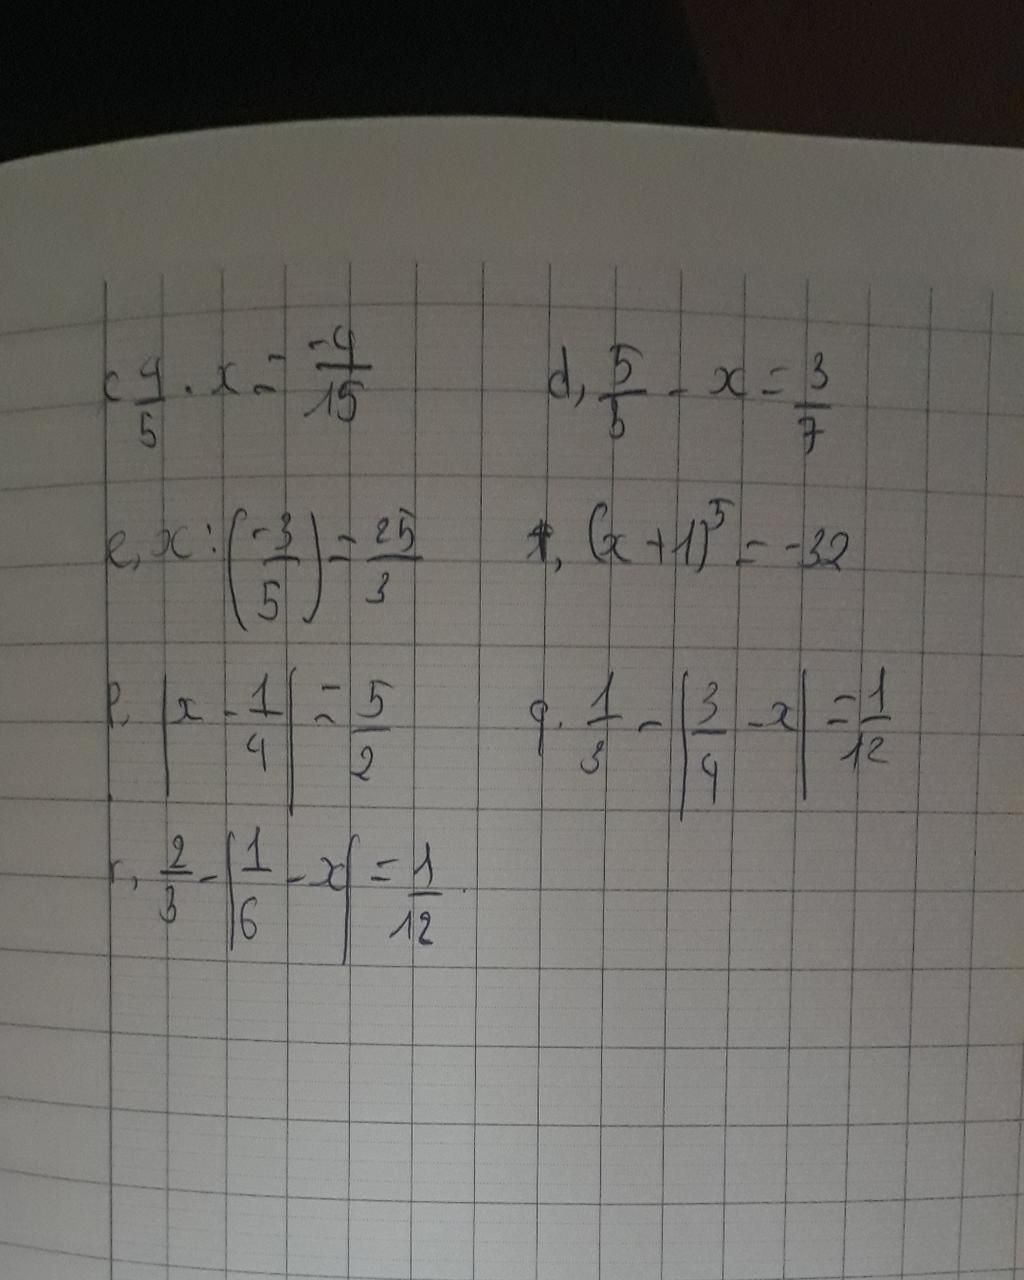 c 4/5 . x = -4/15    d, 5/5 - x = 3/7
e, x : (-3/5) = 25/3    f, (x + 1)^5 = -32
p, |x - 1/4| = 5/2    q. 1/3 - |3/4 - x| = 1/12
r, 2/3 - |1/6 - x| = 1/12.